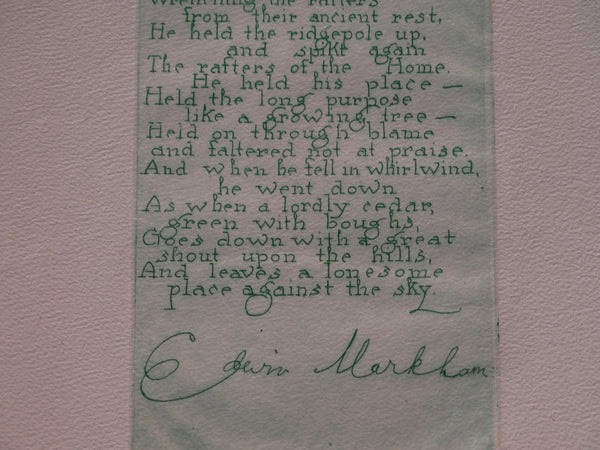 Wrenching the rafters
from their ancient rest,
He held the ridgepole up,
and spikt again
The rafters of the Home.
He held his place —
Held the long purpose
like a growing tree —
Held on through blame
and faltered not at praise.
And when he fell in whirlwind,
he went down
As when a lordly cedar,
green with boughs,
Goes down with a great
shout upon the hills,
And leaves a lonesome
place against the sky.
Edwin Markham